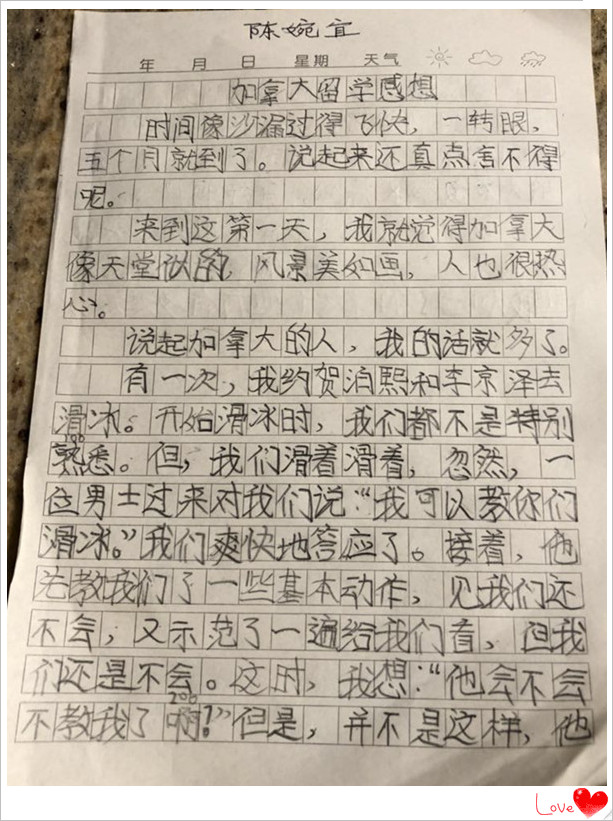 陈婉宜
年 月 日 星期 天气
加拿大留学感想
时间像沙漏过得飞快，一转眼，
五个月就到了。说起来还真点舍不得
呢。
来到这第一天，我就觉得加拿大
像天堂似的，风景美如画，人也很热
心。
说起加拿大的人，我的话就多了。
有一次，我约贺泊熙和李京泽去
滑冰。开始滑冰时，我们都不是特别
100
熟悉。但，我们滑着滑着，忽然，一
位男士过来对我们说：“我可以教你们
滑冰。”我们爽快地答应了。接着，他
先教我们了一些基本动作，见我们还
不会，又示范了一遍给我们看，但我
们还是不会。这时，我想：“他会不会
200
不教我了啊！”但是，并不是这样，他
Love